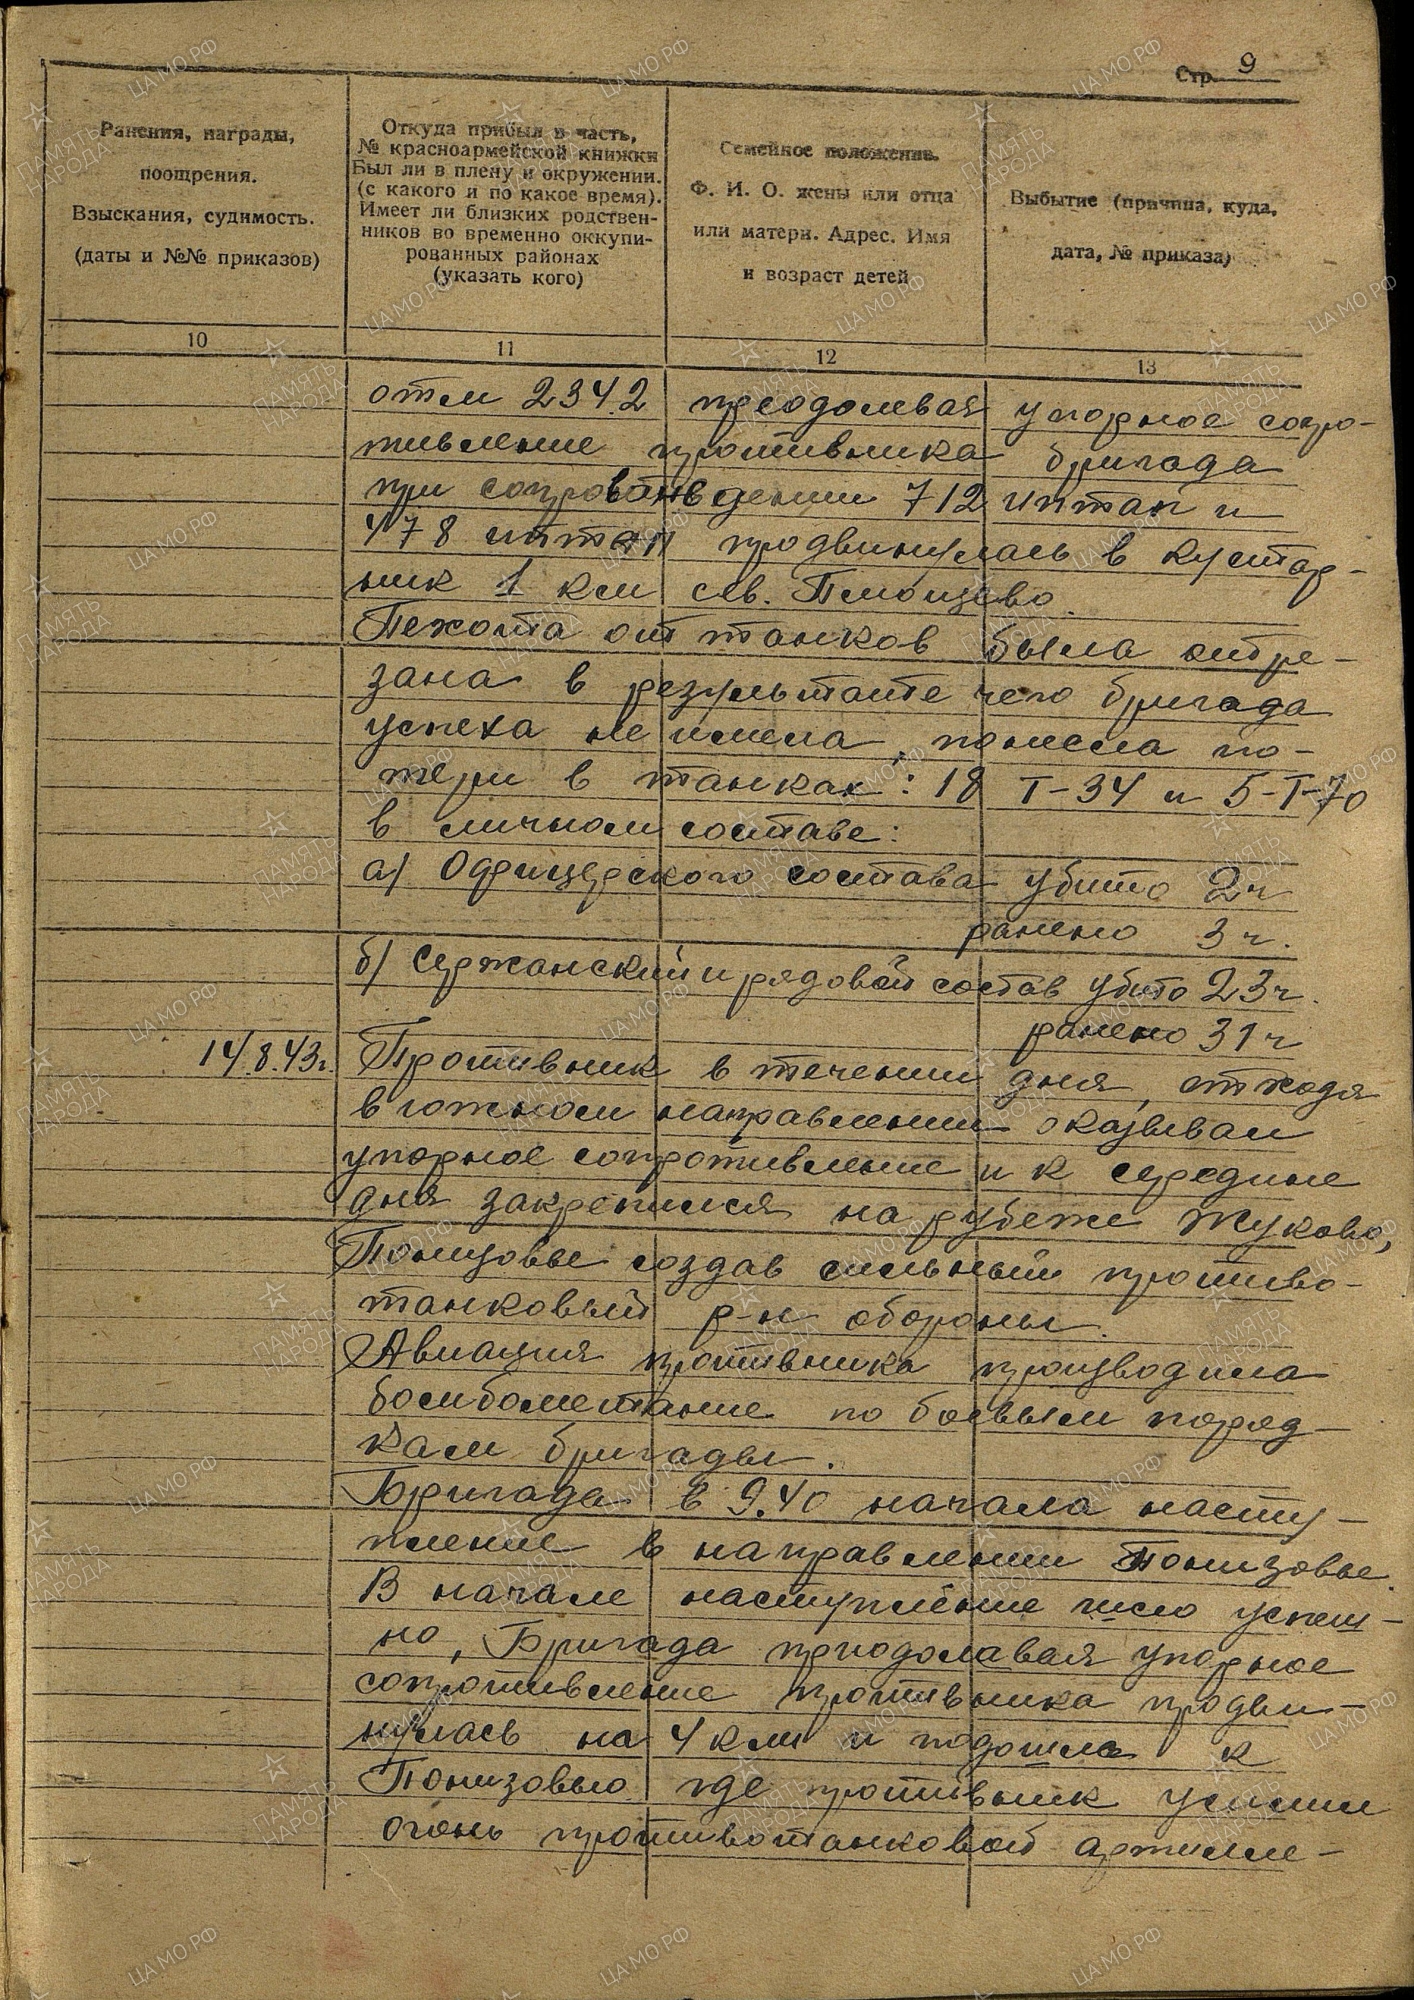 Стр. 9
Ранения, награды,
поощрения.
Взыскания, судимость.
(даты и №№ приказов)
Откуда прибыл в часть,
№ красноармейской книжки
Был ли в плену и окружении.
(с какого и по какое время).
Имеет ли близких родствен-
ников во временно оккупи-
рованных районах
(указать кого)
Семейное положение.
Ф. И. О. жены или отца
или матери. Адрес. Имя
и возраст детей
Выбытие (причина, куда,
дата, № приказа)
10 11 12 13
отм 234.2 преодолевая упорное сопро-
тивление противника бригада
при сопровождении 712 иптап и
478 иптап продвинулась в кустар-
ник 1 км сев.
Пехота от танков была отре-
зана в результате чего бригада
успеха не имела, понесла по-
тери в танках: 18 Т-34 и 5-Т-70
в личном составе:
а) Офицерского состава убито 2ч
ранено 3ч.
б) Сержанский и рядовой состав убито 23ч.
ранено 31ч
14.8.43г. Противник в течении дня, отходя
в южном направлении оказывал
упорное сопротивление и к середине
дня закрепился на рубеже Жуково,
Понизовье создав сильный противо-
танковый р-н обороны.
Авиация противника производила
бомбометание по боевым поряд-
кам бригады.
Бригада в 9.40 начала насту-
пление в направлении Понизовье.
В начале наступление шло успеш-
но, Бригада приодолавая упорное
сопротивление противника продви-
нулась на 4 км и подошла к
Понизовью где противник усилил
огонь противотанковой артилле-